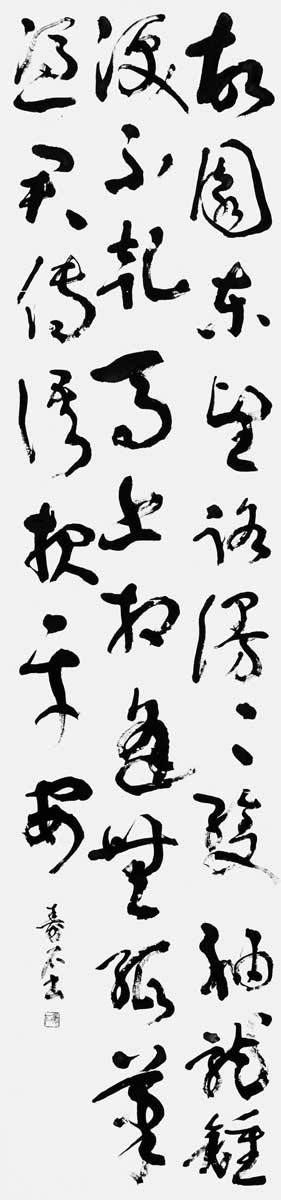 故園東望路漫々雙袖龍鍾
淚不乾馬上相逢無紙筆
憑君傳語報平安